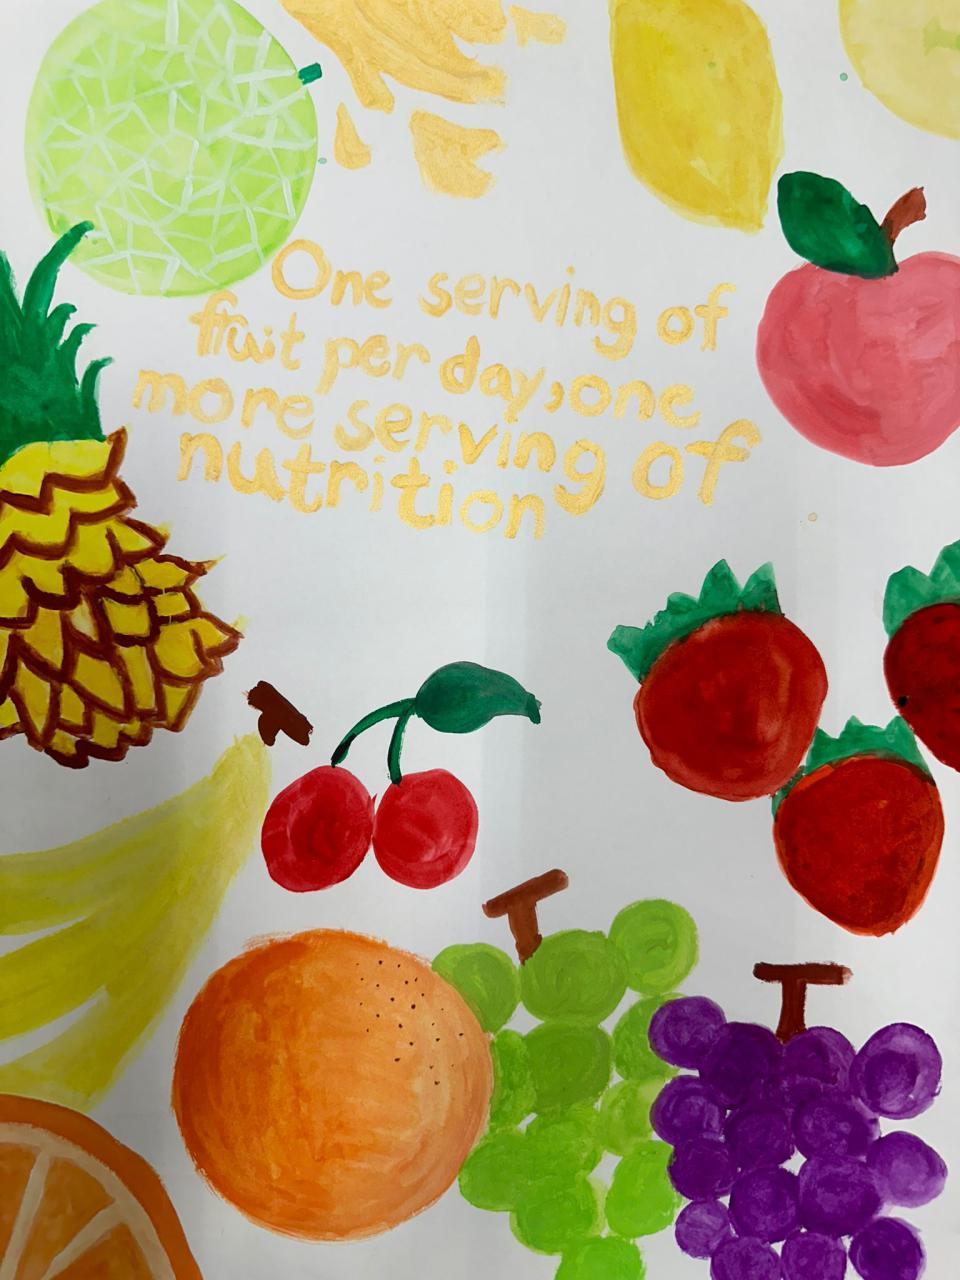 One serving of
fruit per day,one
more serving of
nutrition